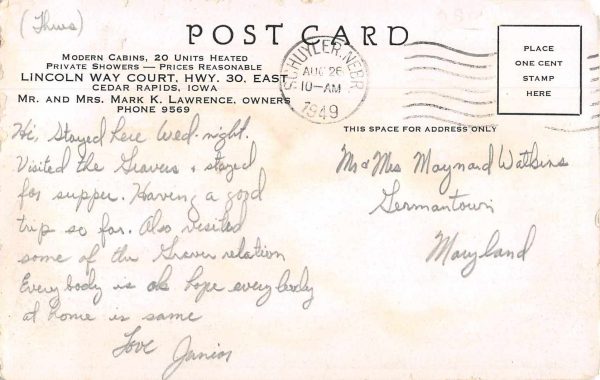 (Thurs)
POST CARD
MODERN CABINS, 20 UNITS HEATED
PRIVATE SHOWERS — PRICES REASONABLE
LINCOLN WAY COURT, HWY. 30, EAST
CEDAR RAPIDS, IOWA
MR. AND MRS. MARK K. LAWRENCE, OWNERS
PHONE 9569
SCHUYLER, NEBR
AUG 26
10-AM
1949
PLACE
ONE CENT
STAMP
HERE
THIS SPACE FOR ADDRESS ONLY
Hi, Stayed here Wed. night.
Visited the Gravers + stayed
for supper. Having a good
trip so far. Also visited
some of the Graver relation
Everybody is ok hope everybody
at home is same
Love Junior
Mr & Mrs Maynard Watkins
Germantown
Maryland